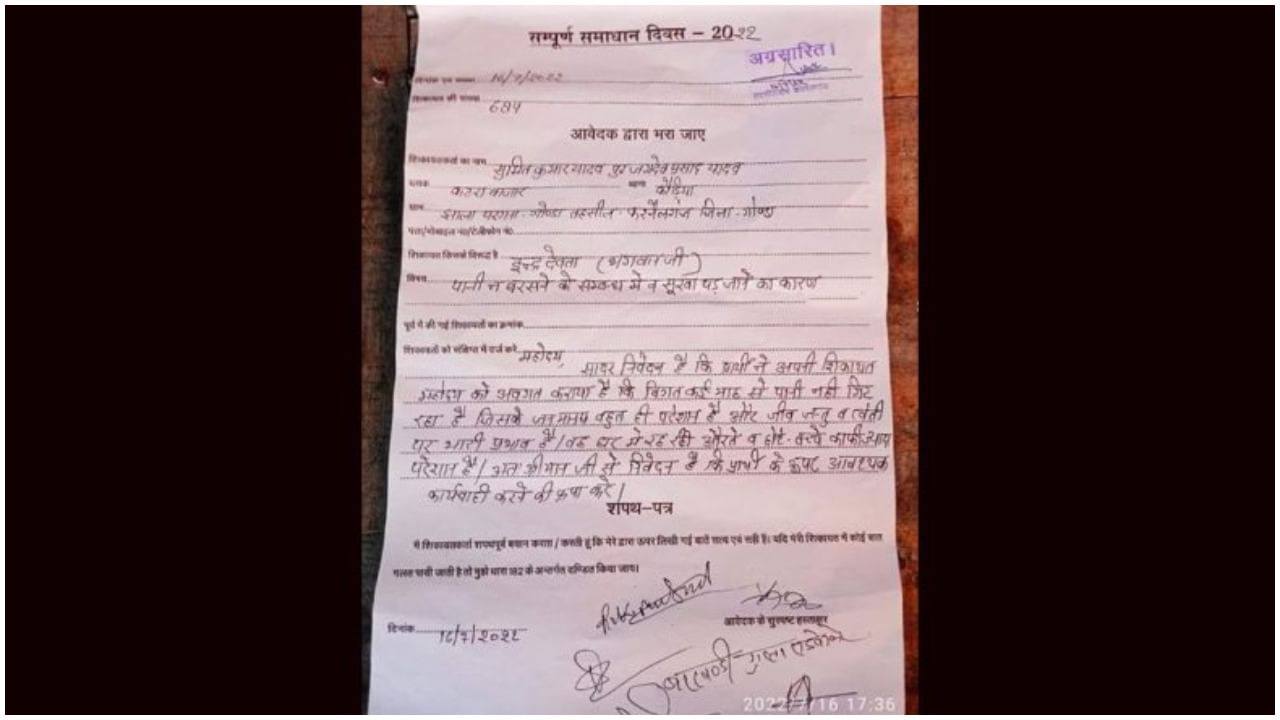 सम्पूर्ण समाधान दिवस – 2022
अग्रसारित।
दिनांक एवं समय 16/7/2022
शिकायत की संख्या 684
आवेदक द्वारा भरा जाए
शिकायतकर्ता का नाम सुमित कुमार यादव पुत्र जगदेव प्रसाद यादव
कटरा बाजार थाना कौडिया
ग्राम झाला परगना - गोण्डा तहसील - करनैलगंज जिला - गोण्डा
पता/मोबाइल नं0/टेलीफोन नं0
शिकायत किसके विरूद्ध है इन्द्र देवता (भगवान जी)
विषय पानी न बरसने के सम्बन्ध में व सूखा पड़ जाने का कारण
पूर्व में की गई शिकायतों का क्रमांक
शिकायतों को संक्षिप्त में दर्ज करे महोदय,
सादर निवेदन है कि प्रार्थी ने अपनी शिकायत
महोदय को अवगत कराया है कि विगत कई माह से पानी नही गिर
रहा है जिसके जनमानष बहुत ही परेशान है और जीव जन्तु व खेती
पर भारी प्रभाव है। वह घर मे रह रही औरते व छोटे-बच्चे काफी ज्यादा
परेशान है। अतः श्रीमान जी से निवेदन है कि प्रार्थी के ऊपर आवश्यक
कार्यवाही करने की कृपा करे।
शपथ–पत्र
मै शिकायतकर्ता शपथपूर्ण बयान करता / करती हूं कि मेरे द्वारा ऊपर लिखी गई बाते सत्य एवं सही है। यदि मेरी शिकायत में कोई बात
गलत पायी जाती है तो मुझे धारा 182 के अन्तर्गत दण्डित किया जाय।
आवेदक के सुस्पष्ट हस्ताक्षर
दिनांक 16/7/2022
गुप्ता एडवोकेट
2022/7/16 17:36